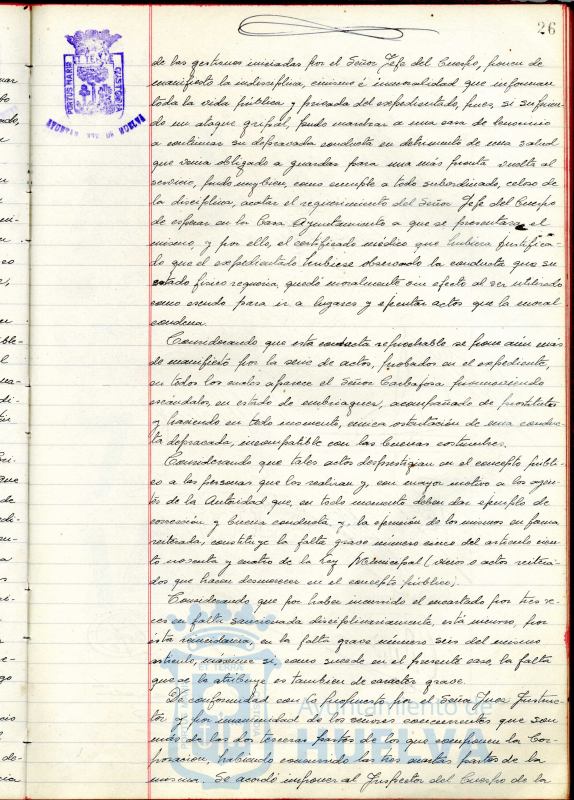 26
PORTUS MARIS ET TERRAE CUSTODIA
AYUNTAMIENTO DE HUELVA
de las gestiones iniciadas por el Señor Jefe del Cuerpo, ponen de
manifiesto la indisciplina, cinismo é inmoralidad que informan
toda la vida pública y privada del expedientado, pues, si sufrien-
do un ataque gripal, pudo marchar a una casa de lenocinio
a continuar su depravada conducta en detrimento de una salud
que venia obligado a guardar para una más pronta vuelta al
servicio, pudo muy bien, como cumple a todo subordinado, celoso de
la disciplina, acatar el requerimiento del Señor Jefe del Cuerpo
de esperar en la Casa Ayuntamiento a que se presentase el
mismo, y por ello, el certificado médico que hubiera justifica-
do que el expedientado hubiese observado la conducta que su
estado fisico requeria, quedó moralmente sin efecto al ser utilizado
como escudo para ir a lugares y ejecutar actos que la moral
condena.
Considerando que esta conducta reprochable se pone aún más
de manifiesto por la serie de actos, probados en el expediente,
en todos los cuales aparece el Señor Carbajosa promoviendo
escándalos, en estado de embriaguez, acompañado de prostitutas
y haciendo en todo momento, cinica ostentación de una conduc-
ta depravada, incompatible con las buenas costumbres.
Considerando que tales actos desprestigian en el concepto públi-
co a las personas que los realizan y, con mayor motivo a los agen-
tes de la Autoridad que, en todo momento deben dar ejemplo de
corrección y buena conducta, y, la ejecución de los mismos en forma
reiterada, constituye la falta grave número cinco del articulo cien-
to noventa y cuatro de la Ley Municipal (vicios o actos reitera-
dos que hacen desmerecer en el concepto público).
Considerando que por haber incurrido el encartado por tres ve-
ces en falta sancionada disciplinariamente, está incurso, por
esta reincidencia, en la falta grave número seis del mismo
articulo, máxime si, como sucede en el presente caso, la falta
que se le atribuye es tambien de carácter grave.
De conformidad con lo propuesto por el Señor Juez Instruc-
tor y por unanimidad de los señores concurrentes que son
más de las dos terceras partes de los que componen la Cor-
poración, habiendo concurrido las tres cuartas partes de la
misma. Se acordó imponer al Inspector del Cuerpo de la
Ayuntamiento de
HUELVA